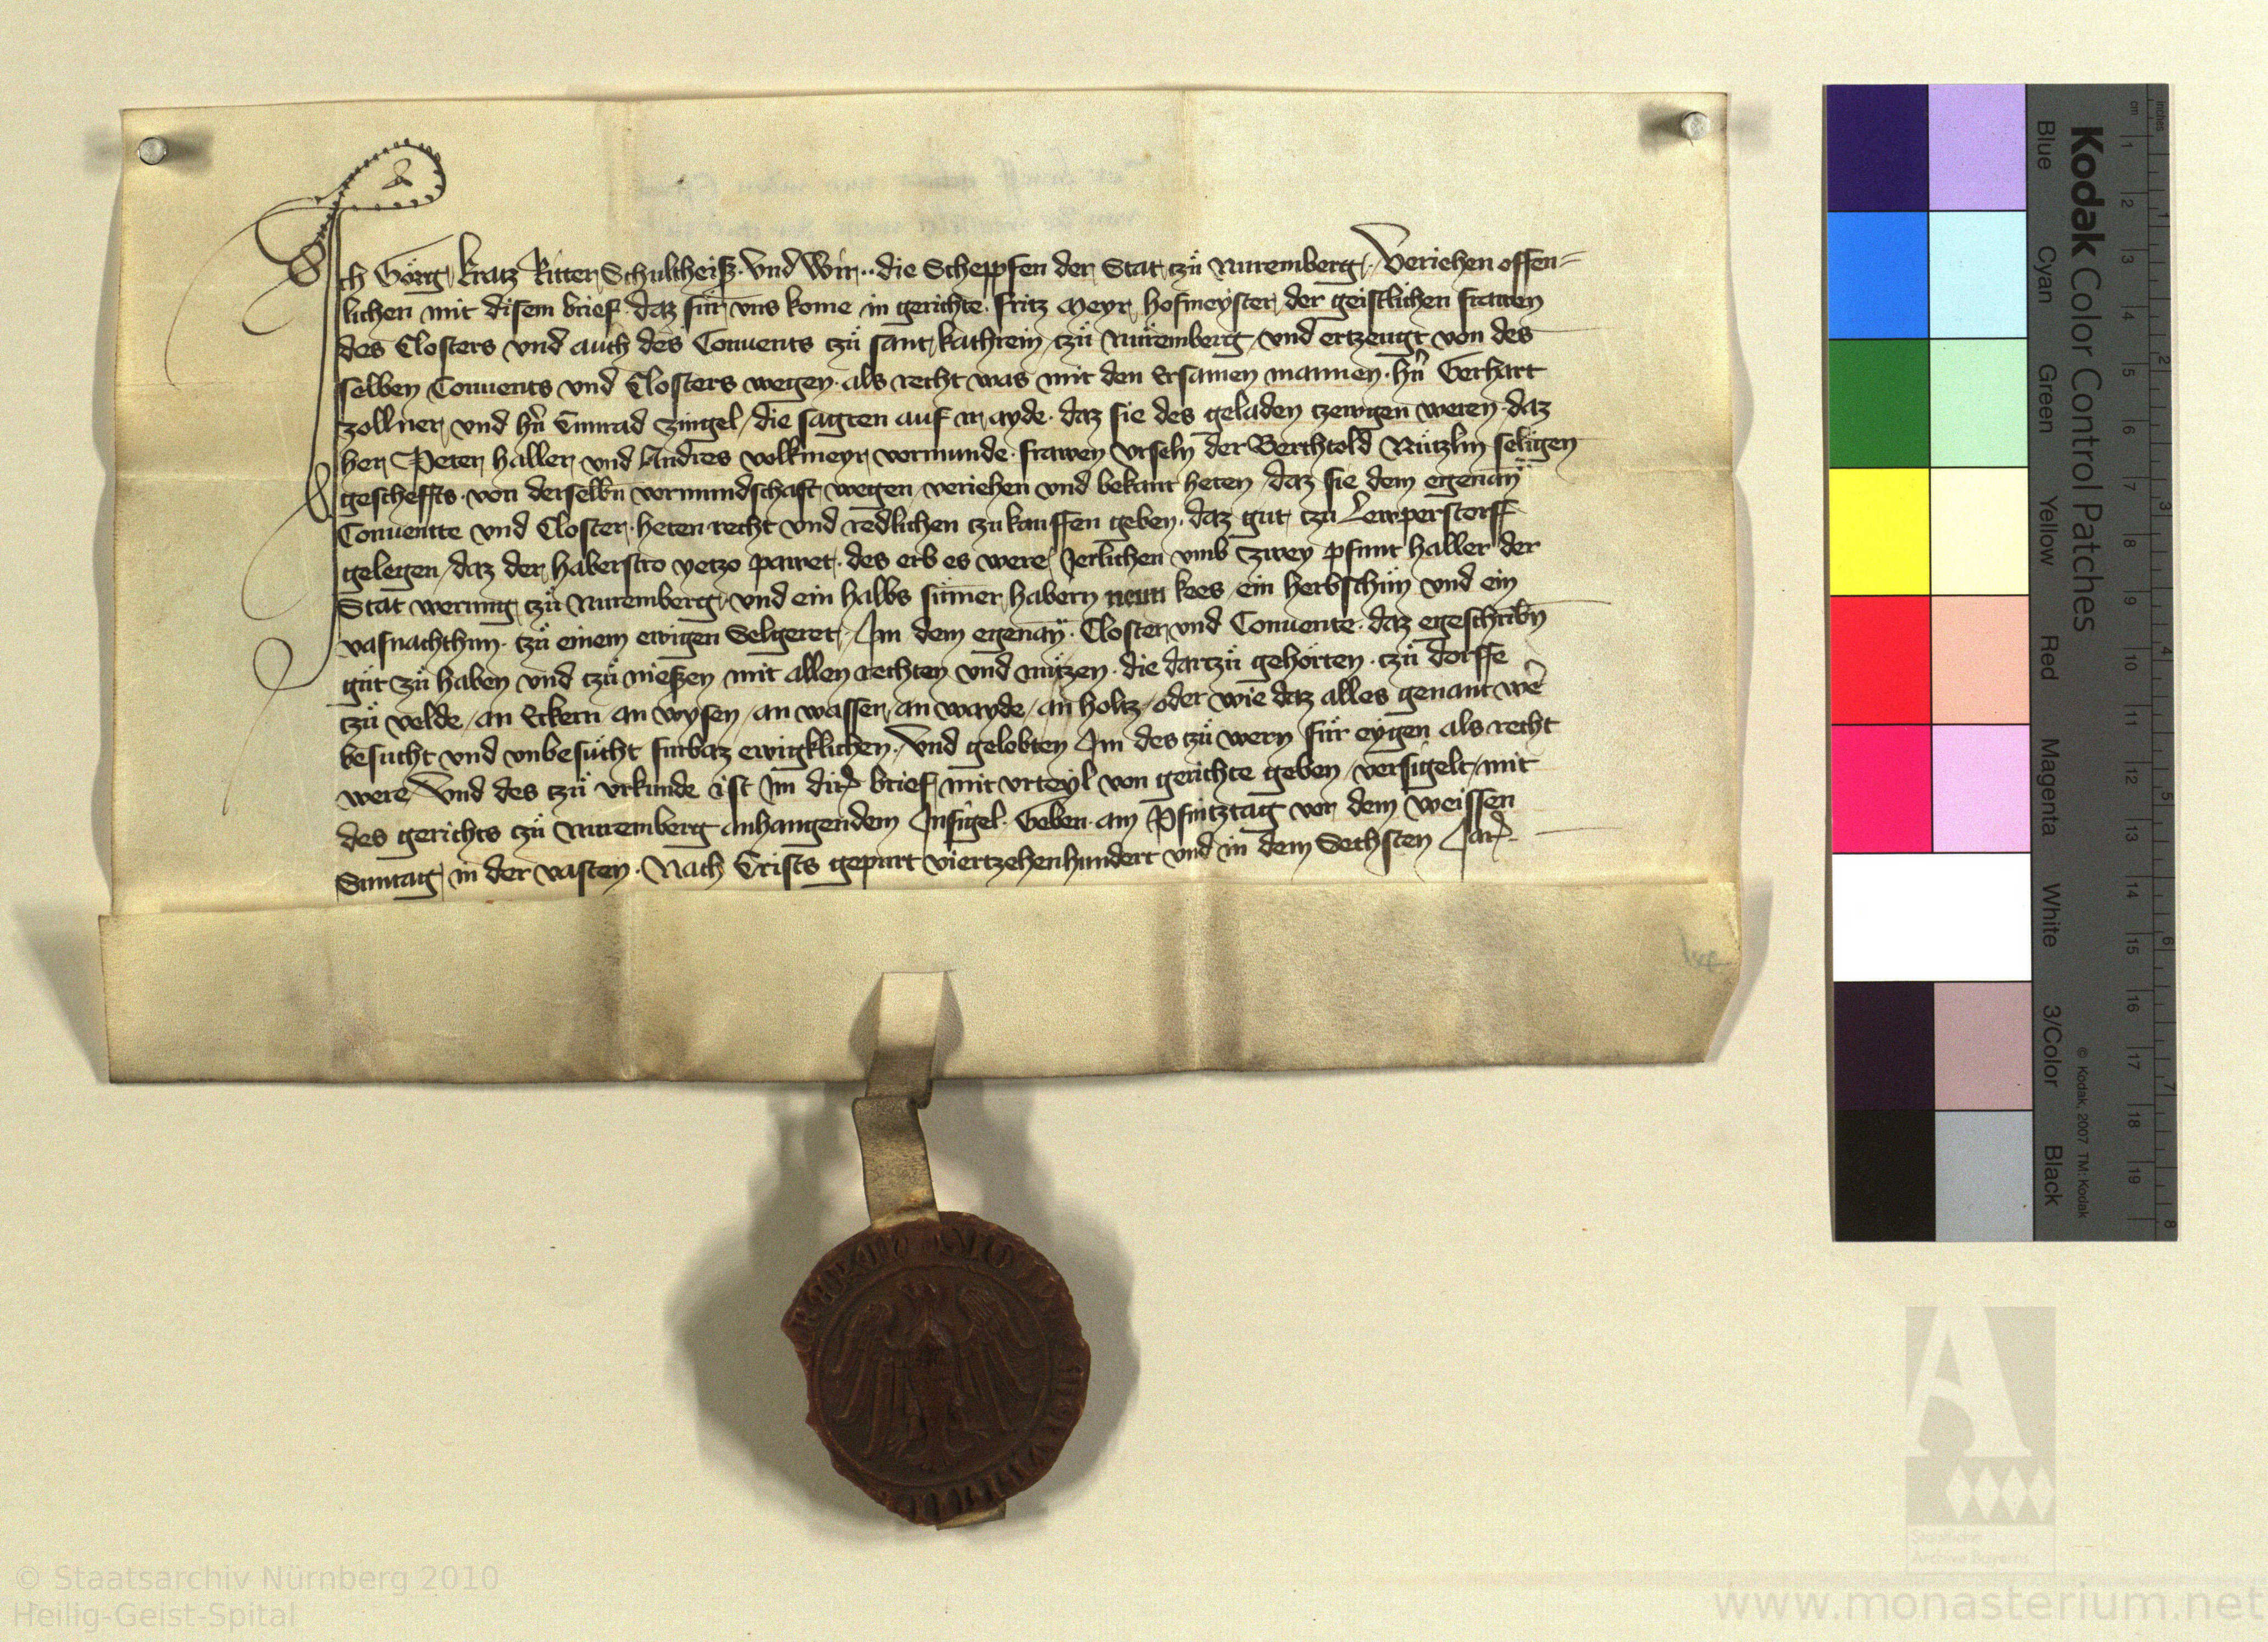 Ich Görg Kratz Ritter Schultheiß · Vnd Wir ·· die Scheppfen der Stat tzů Nuremberg · Veriehen offen=
lichen mit disem brief · daz für vns kome in gerichte · fritz Meyr hofmeyster der geistlichen frawen
des Closters vnd auch des Conuents tzů sant kathrein / tzů Nůremberg / vnd ertzeugt von des
selben Conuents vnd Closters wegen · als recht was mit den Ersamen mannen · hn̄ Gerhart
zollner vnd hn̄ Cunrad Zingel / die sagten auf ir ayde · daz sie des geladen tzewgen weren · daz
her Peter haller vnd Andres volkmeyr vormunde · frawen Vrseln der Berchtold Nützlin seligen
gescheffts · von derselbn̄ vormundschaft wegen / veriehen vnd bekant heten / daz sie dem egenan̄
Conuentte vnd Closter · heten recht vnd redlichen tzukauffen geben · daz gut tzu Lewperstorff
gelegen / daz der haberstro yetzo pawet · des erb es were Jerlichen vmb zwey pfunt haller der
Stat werung tzů Nuremberg / vnd ein halbs sümer habern neun kees / ein herbsthůn vnd ein
vasnachthun · tzů einem ewigen Selgeret / Im dem egenan̄ · Closter vnd Conuente · daz egeschribn̄
gůt zů haben vnd tzů nießen mit allen rechten vnd nützen · die dartzů gehörten · tzů dorffe
tzů velde / an Eckern an wysen / an wasser an wayde / an holtz / oder wie daz alles genant wer̄
besucht vnd vnbesůcht furbaz ewigklichen / Vnd gelobten Im des tzů wern für eygen als recht
were / Vnd des tzů vrkunde ist Im dir̄ brief mit vrteyl von gerichte geben / versigelt / mit
des gerichts tzů Nuremberg anhangendem Insigel · Geben am Pfintztag vor dem weissen
Suntag in der vasten · Nach Crists gepurt viertzehenhundert vnd in dem Sechsten Jar̄ ·
Kodak Color Control Patches
Blue Cyan Green Yellow Red Magenta White 3/Color Black
© Kodak, 2007 TM: Kodak
cm 1 2 3 4 5 6 7 8 9 10 11 12 13 14 15 16 17 18 19
inches 1 2 3 4 5 6 7 8
Staatliche
Archive Bayerns
© Staatsarchiv Nürnberg 2010
Heilig-Geist-Spital
www.monasterium.net